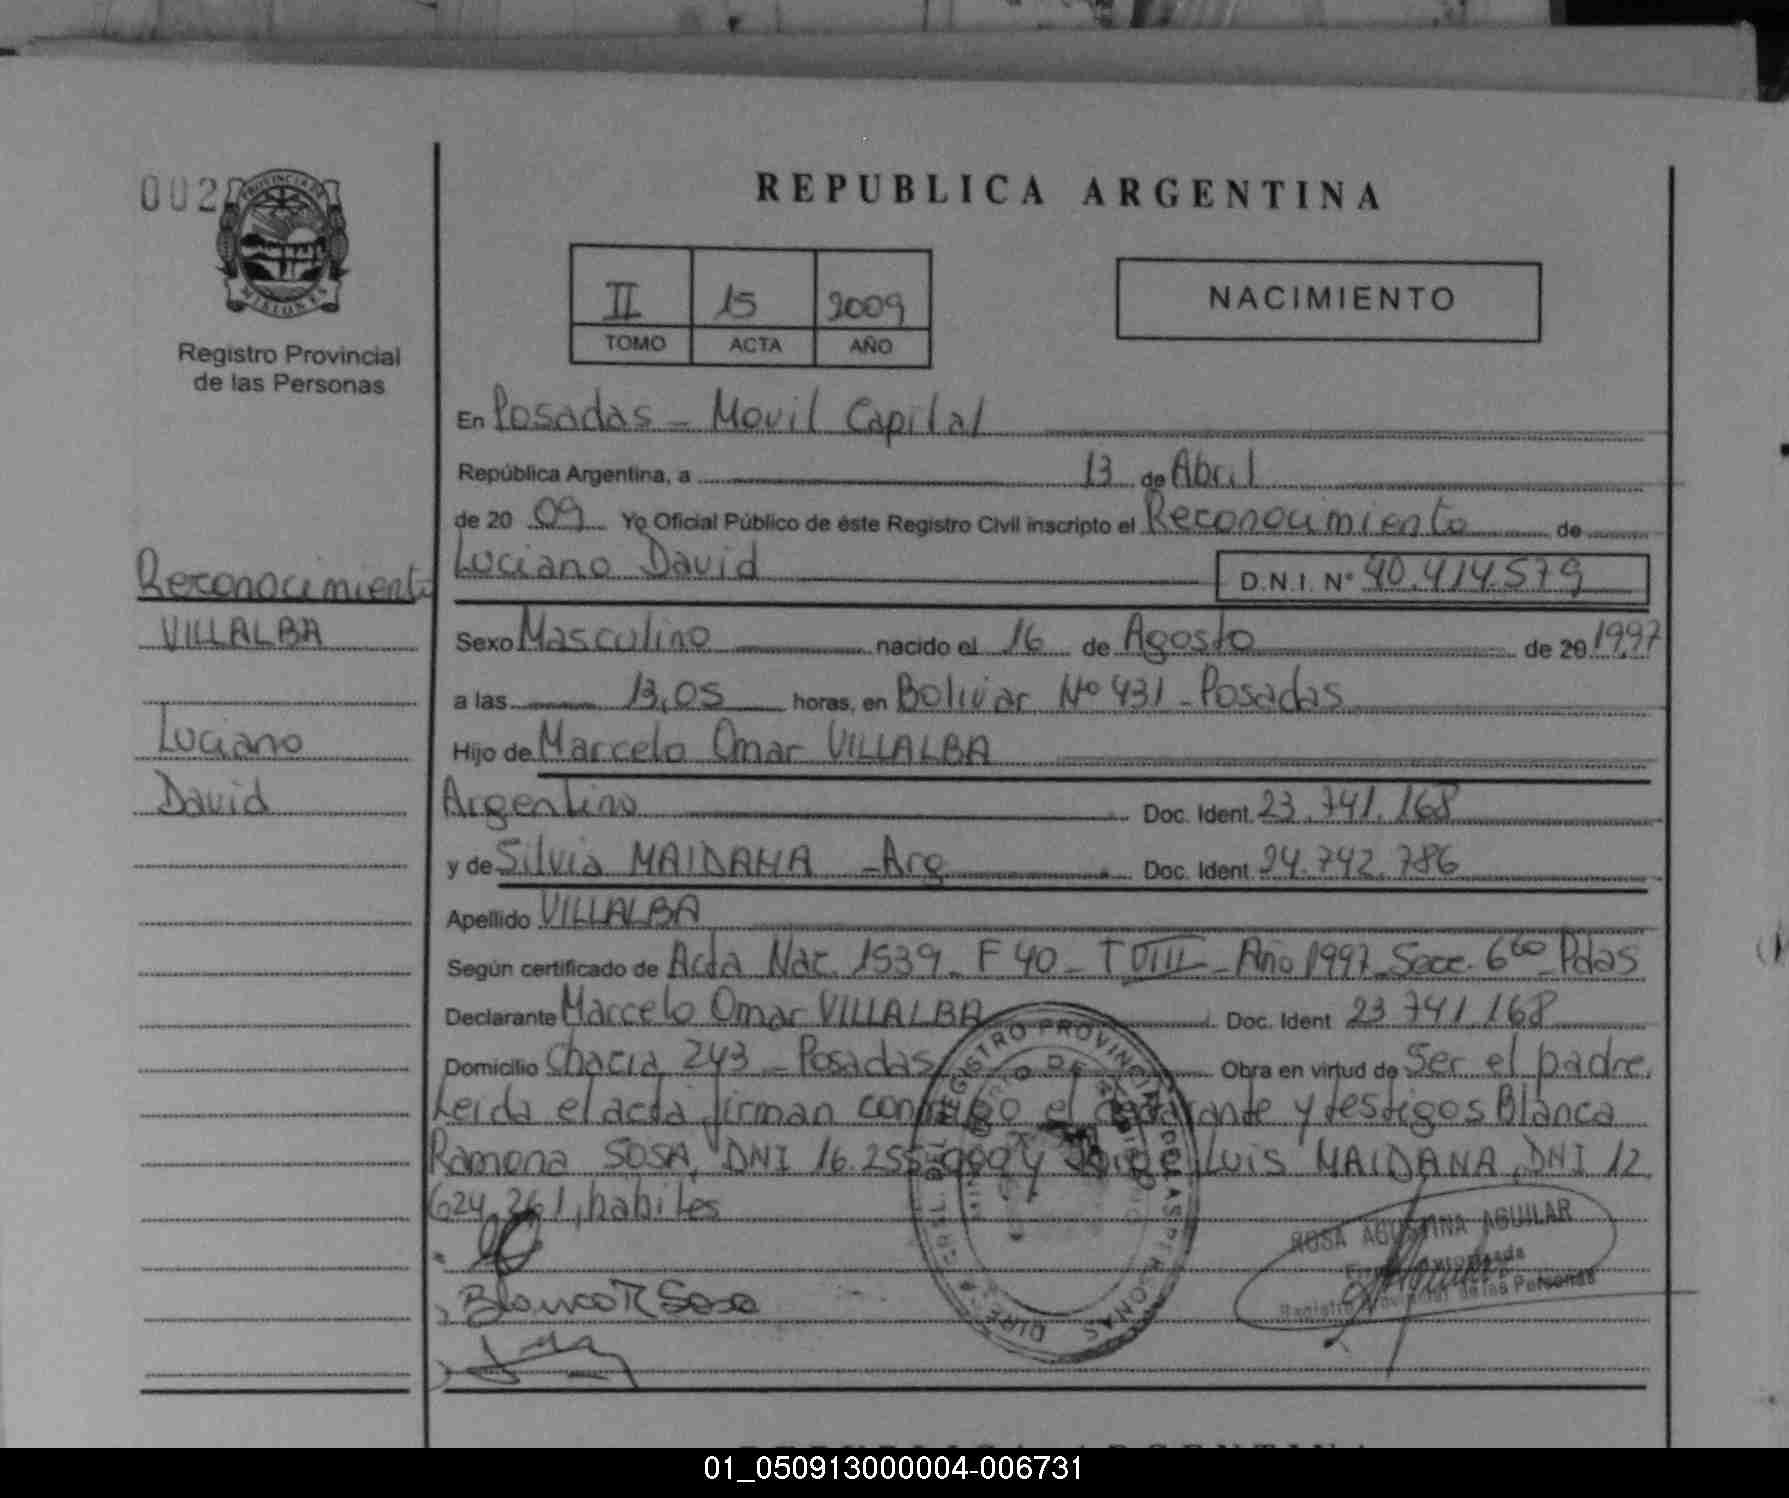 002
PROVINCIA DE
MISIONES
Registro Provincial
de las Personas
REPUBLICA ARGENTINA
II 15 2009
TOMO ACTA AÑO
NACIMIENTO
En Posadas - Movil Capital
República Argentina, a 13 de Abril
de 20 09 Yo Oficial Público de éste Registro Civil inscripto el Reconocimiento de
Luciano David D.N.I. N° 40.414.579
Reconocimiento
VILLALBA
Luciano
David
Sexo Masculino nacido el 16 de Agosto de 20 1997
a las 13,05 horas, en Bolivar Nº 431 - Posadas
Hijo de Marcelo Omar VILLALBA
Argentino Doc. Ident. 23.741.168
y de Silvia MAIDANA - Arg Doc. Ident. 24.742.786
Apellido VILLALBA
Según certificado de Acta Nac. 1539 - F 40 - T VIII - Año 1997 - Secc. 6ta - Pdas
Declarante Marcelo Omar VILLALBA Doc. Ident 23 741 168
Domicilio Chacra 243 - Posadas Obra en virtud de Ser el padre.
Leida el acta firman conmigo el declarante y testigos Blanca
Ramona SOSA, DNI 16.255 y Luis MAIDANA, DNI 12
624.261, habiles
Blanca R Sosa
REGISTRO PROVINCIAL DE LAS PERSONAS
ROSA AGUSTINA AGUILAR
Registro Provincial de las Personas
REPUBLICA ARGENTINA
01_050913000004-006731